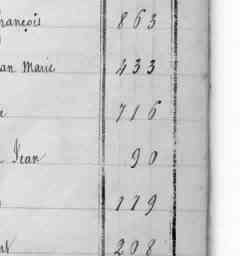 François 863
an Marie 433
e 716
Jean 90
119
208